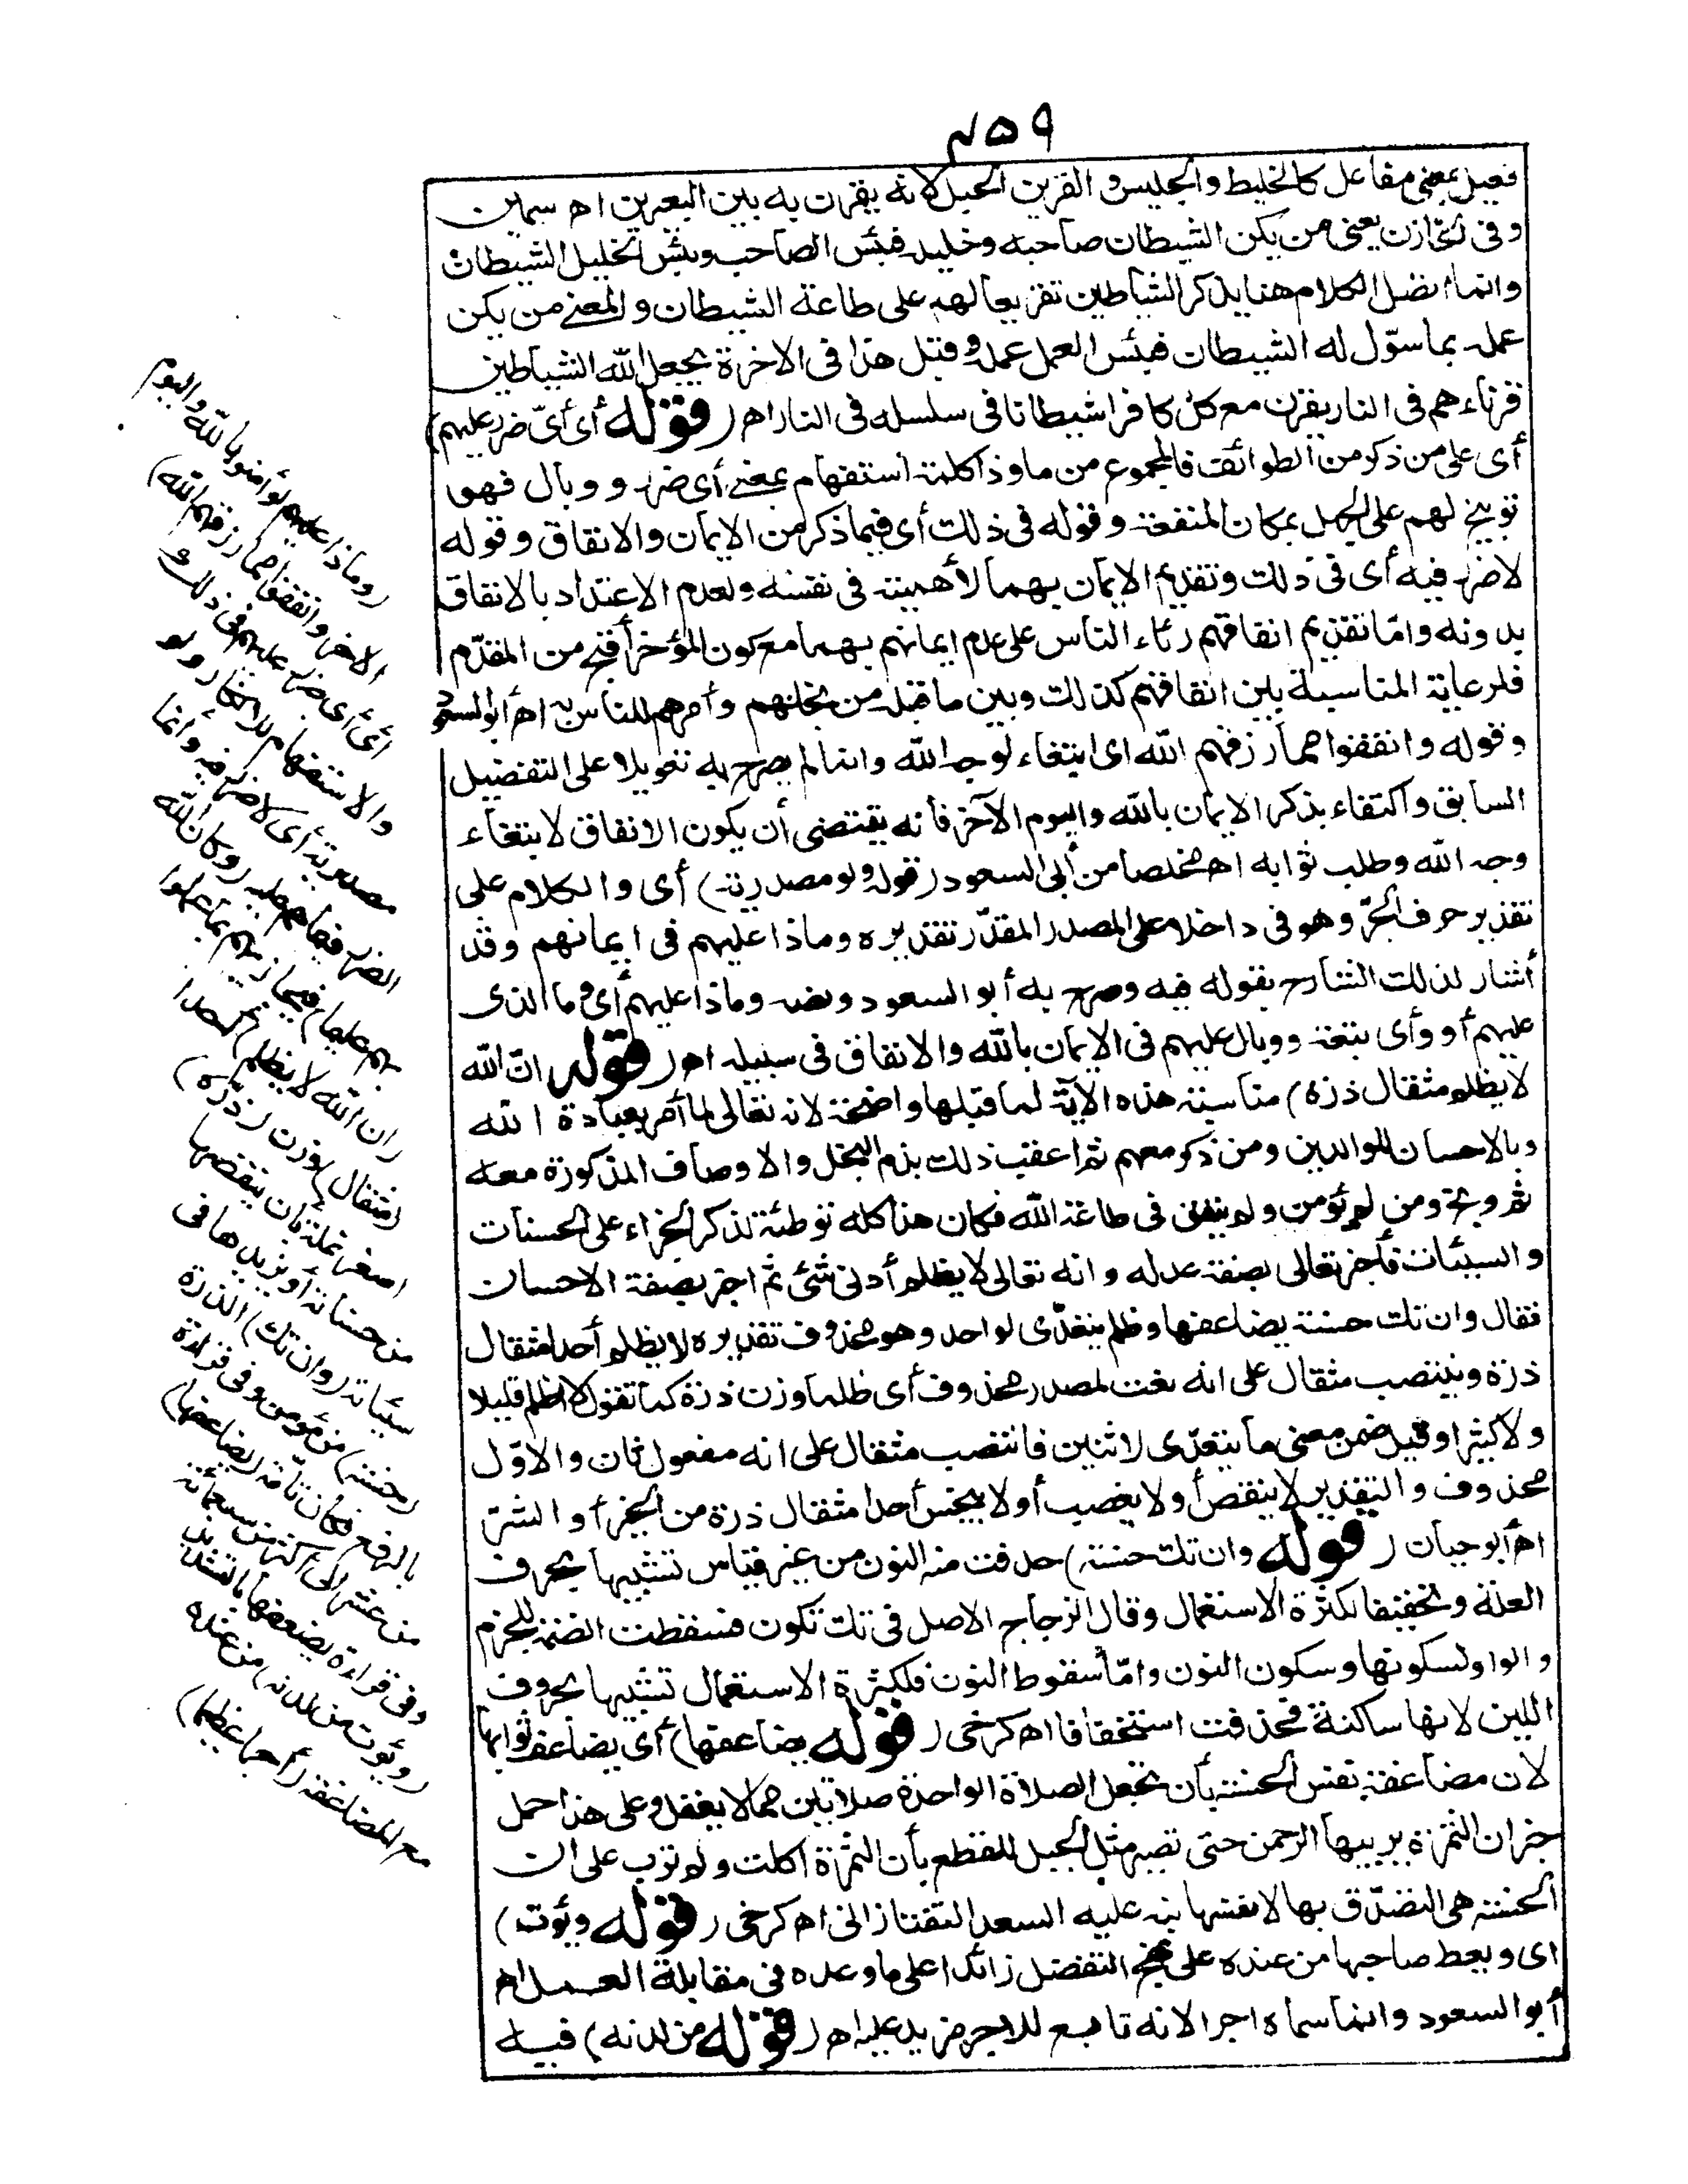 ٤٥٩
فعيل بمعنى مفاعل كالخليط والجليس والقرين الحبل لانه يقرن به بين البعيرين اه سمين
وفى الخازن يعنى من يكن الشيطان صاحبه وخليله فبئس الصاحب وبئس الخليل الشيطان
وانما اتصل الكلام هنا بذكر الشياطين تقريعا لهم على طاعة الشيطان والمعنى من يكن
عمله بما سوّل له الشيطان فبئس العمل عمله وقيل هذا فى الاخرة يجعل الله الشياطين
قرناءهم فى النار يقرن مع كل كافر شيطانا فى سلسلة فى النار اه (قوله أى أىّ ضرر عليهم)
أى على من ذكر من الطوائف فالمجموع من ما وذا كلمة استفهام بمعنى أى ضرر ووبال فهو
توبيخ لهم على الجهل بمكان المنفعة وقوله فى ذلك أى فيما ذكر من الايمان والانفاق وقوله
لا ضرر فيه أى فى ذلك وتقديم الايمان بهما لأهميته فى نفسه ولعدم الاعتداد بالانفاق
بدونه وامّا تقديم انفاقهم رئاء الناس على عدم ايمانهم بهما مع كون المؤخر أقبح من المقدّم
فلرعاية المناسبة بين انفاقهم كذلك وبين ما قبله من بخلهم وأمرهم للناس به اه أبو السعود
وقوله وانفقوا مما رزقهم الله اى ابتغاء لوجه الله وانما لم يصرح به تعويلا على التفضيل
السابق واكتفاء بذكر الايمان بالله واليوم الآخر فأنه يقتضى أن يكون الانفاق لابتغاء
وجه الله وطلب ثوابه اه ملخصا من أبى السعود (قوله ولو مصدرية) أى والكلام على
تقدير حرف الجرّ وهو فى داخلا على المصدر المقدّر تقديره وماذا عليهم فى ايمانهم وقد
أشار لذلك الشارح بقوله فيه وصرح به أبو السعود ونصه وماذا عليهم أى وما الذى
عليهم أو وأى تبعة ووبال عليهم فى الايمان بالله والانفاق فى سبيله اه (قوله انّ الله
لا يظلم مثقال ذرة) مناسبة هذه الاية لما قبلها واضحة لانه تعالى لما أمر بعبادة الله
وبالاحسان للوالدين ومن ذكر معهم ثم اعقب ذلك بذم البخل والاوصاف المذكورة معه
ثم وبخ ومن لم يؤمن ولم ينفق فى طاعة الله فكان هذا كله توطئة لذكر الجزاء على الحسنات
والسيئات فأخبر تعالى بصفة عدله وانه تعالى لا يظلم أدنى شئ ثم اخبر بصفة الاحسان
فقال وان تك حسنة يضاعفها وظلم يتعدّى لواحد وهو محذوف تقديره لا يظلم أحدا مثقال
ذرة وينتصب مثقال على انه نعت لمصدر محذوف أى ظلما وزن ذرة كما تقول لا اظلم قليلا
ولا كثيرا وقيل ضمن معنى ما يتعدّى لاثنين فانتصب مثقال على انه مفعول ثان والاوّل
محذوف والتقدير لا ينقص أو لا يغصب أو لا يبخس أحدا مثقال ذرة من الخير أو الشرّ
اه أبو حيان (قوله وان تك حسنة) حذفت منه النون من غير قياس تشبيها بحرف
العلة وتخفيفا لكثرة الاستعمال وقال الزجاج الاصل فى تك تكون فسقطت الضمة للجزم
والواو لسكونها وسكون النون وامّا سقوط النون فلكثرة الاستعمال تشبيها بحروف
اللين لانها ساكنة فحذفت استخفافا اه كرخى (قوله يضاعفها) أى يضاعف ثوابها
لان مضاعفة نفس الحسنة بأن تجعل الصلاة الواحدة صلاتين مما لا يعقل وعلى هذا حمل
خبر ان التمرة يربيها الرحمن حتى تصير مثل الجبل للقطع بأن التمرة اكلت ولم ترب على ان
الحسنة هى التصدّق بها لا نفسها نبه عليه السعد التفتازانى اه كرخى (قوله ويؤت)
اى ويعط صاحبها من عنده على نهج التفضل زائدا على ما وعده فى مقابلة العمل اه
أبو السعود وانما سماه اجرا لانه تابع للاجر مزيد عليه اه (قوله من لدنه) فيه
(وماذا عليهم لو آمنوا بالله واليوم
الاخر وانفقوا مما رزقهم الله)
أى أى ضرر عليهم فى ذلك
والاستفهام للانكار ولو
مصدرية أى لا ضرر فيه وانما
الضرر فيما هم عليه (وكان الله
بهم عليما) فيجازيهم بما عملوا
(ان الله لا يظلم) احدا
(مثقال) وزن (ذرة)
اصغر نملة بان ينقصها
من حسناته أو يزيدها فى
سيئاته (وان تك) الذرة
(حسنة) من مؤمن وفى قراءة
بالرفع فكان تامّة (يضاعفها)
من عشر الى أكثر من سبعمائة
وفى قراءة يضعفها بالتشديد
(ويؤت من لدنه) من عنده
مع المضاعفة (أجرا عظيما)